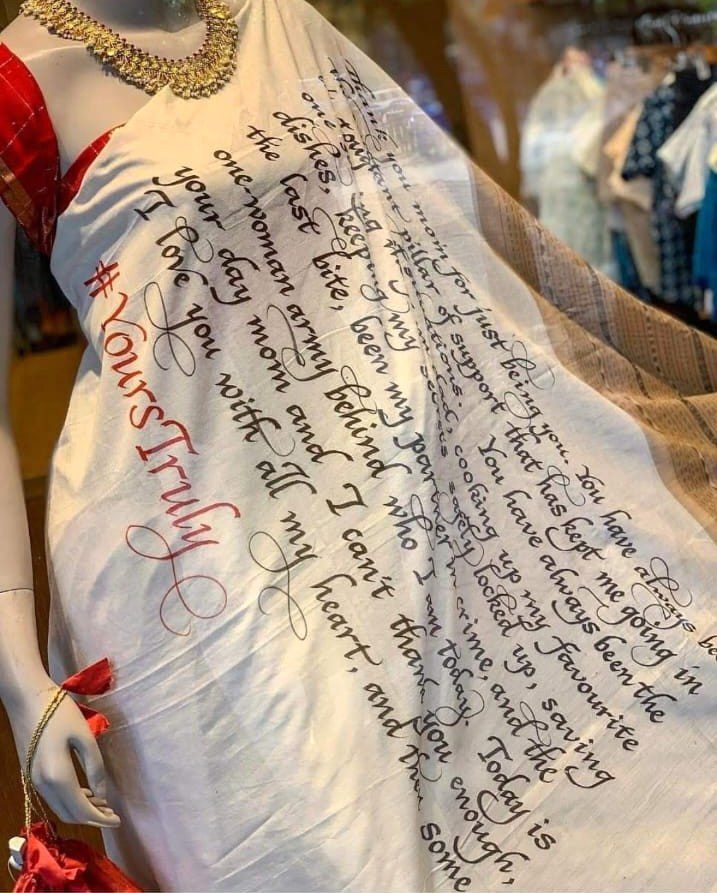 Thank you mom for just being you. You have always be
pillar of support that has kept me going in
situations. You have always been the
one cooking up my favourite
dishes, keeping my secrets safely locked up, saving
the last bite, been my partner in crime, and the
one-woman army behind who I am today. Today is
your day mom and I can't thank you enough,
I love you with all my heart, and then some
#YoursTruly